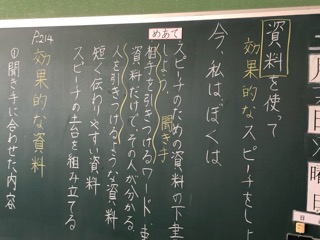 資料を使って
効果的なスピーチをしよ
今、私はぼくは
めあて
スピーチのための資料の下書
しよう。 聞き手
相手を引きつけるワード、
資料だけで、その人が分かる。
人を引きつけるような資料
短く伝わりやすい資料
スピーチの土台を組み立てる
P214
効果的な資料
①聞き手に合わせた内容
月
日
曜
日
日